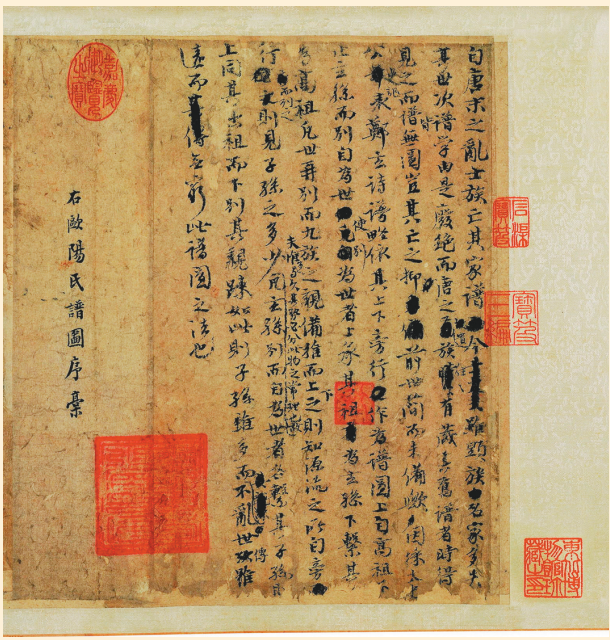 自唐末之亂士族亡其家譜今雖顯族名家多失
其世次譜学由是廢絕而唐之遺族往往有藏其舊譜者時得
見之而譜皆無圖豈其亡之抑前世簡而未備歟因採太史
公史記表鄭玄詩譜略依其上下旁行作為譜圖上自高祖下
止玄孫而別自為世使別為世者上承其祖為玄孫下繫其
孫為高祖凡世再別而九族之親備推而上下之則知源流之所自旁
行而列之則見子孫之多少夫惟多与久其勢必分此物之常理也凡玄孫別而自為世者各繫其子孫則
上同其出祖而下別其親踈如此則子孫雖多而不亂世傳雖
遠而無窮此譜圖之法也
右歐陽氏譜圖序稾
嘉慶御覽之寶
石渠寶笈
寶笈三編
東北博物館珍藏之印